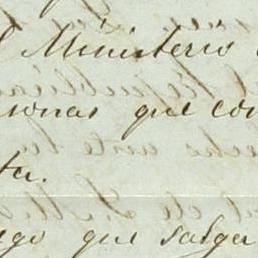 Ministerio
sonas que con
ta.
go que salga